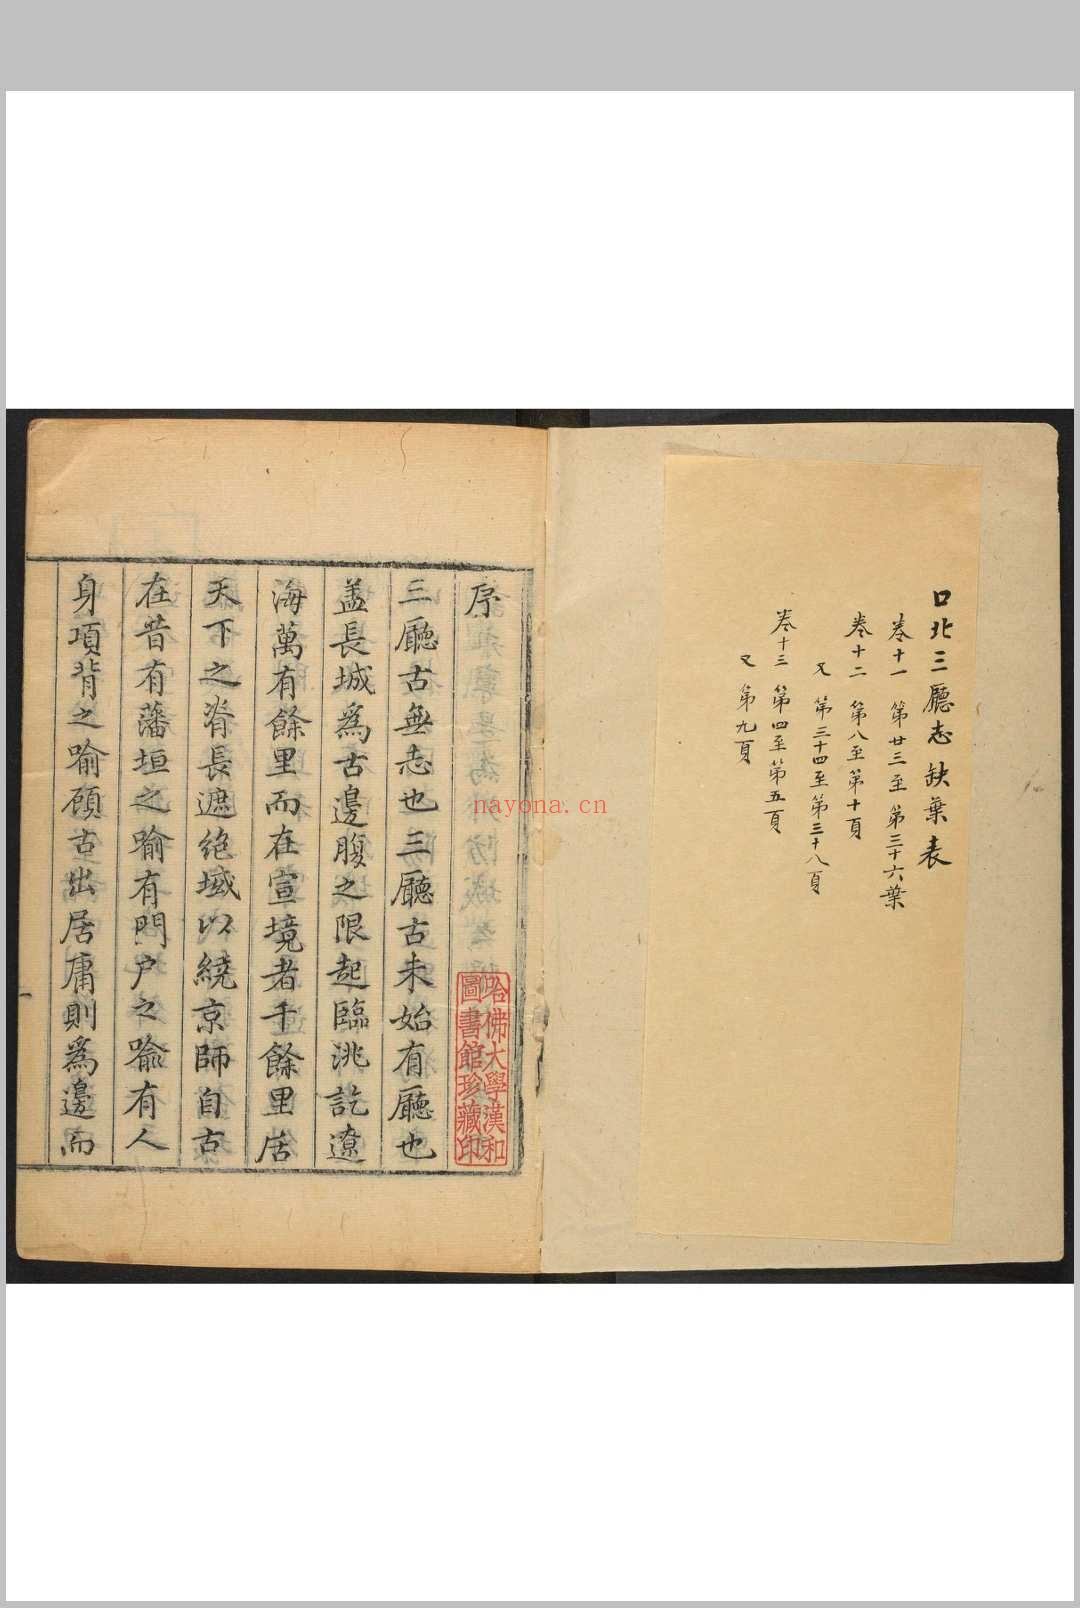 口北三廳志缺葉表
卷十一 第廿三至第三十六葉
卷十二 第八至第十頁
又 第三十四至第三十八頁
卷十三 第四至第五頁
又 第九頁
序
三廳古無志也三廳古未始有廳也
盖長城爲古邊腹之限起臨洮訖遼
海萬有餘里而在宣境者千餘里居
天下之脊長遮絶域以繞京師自古
在昔有藩垣之喻有門户之喻有人
身項背之喻顧古出居庸則爲邊而
哈佛大學漢和
圖書館珍藏印
nayona.cn